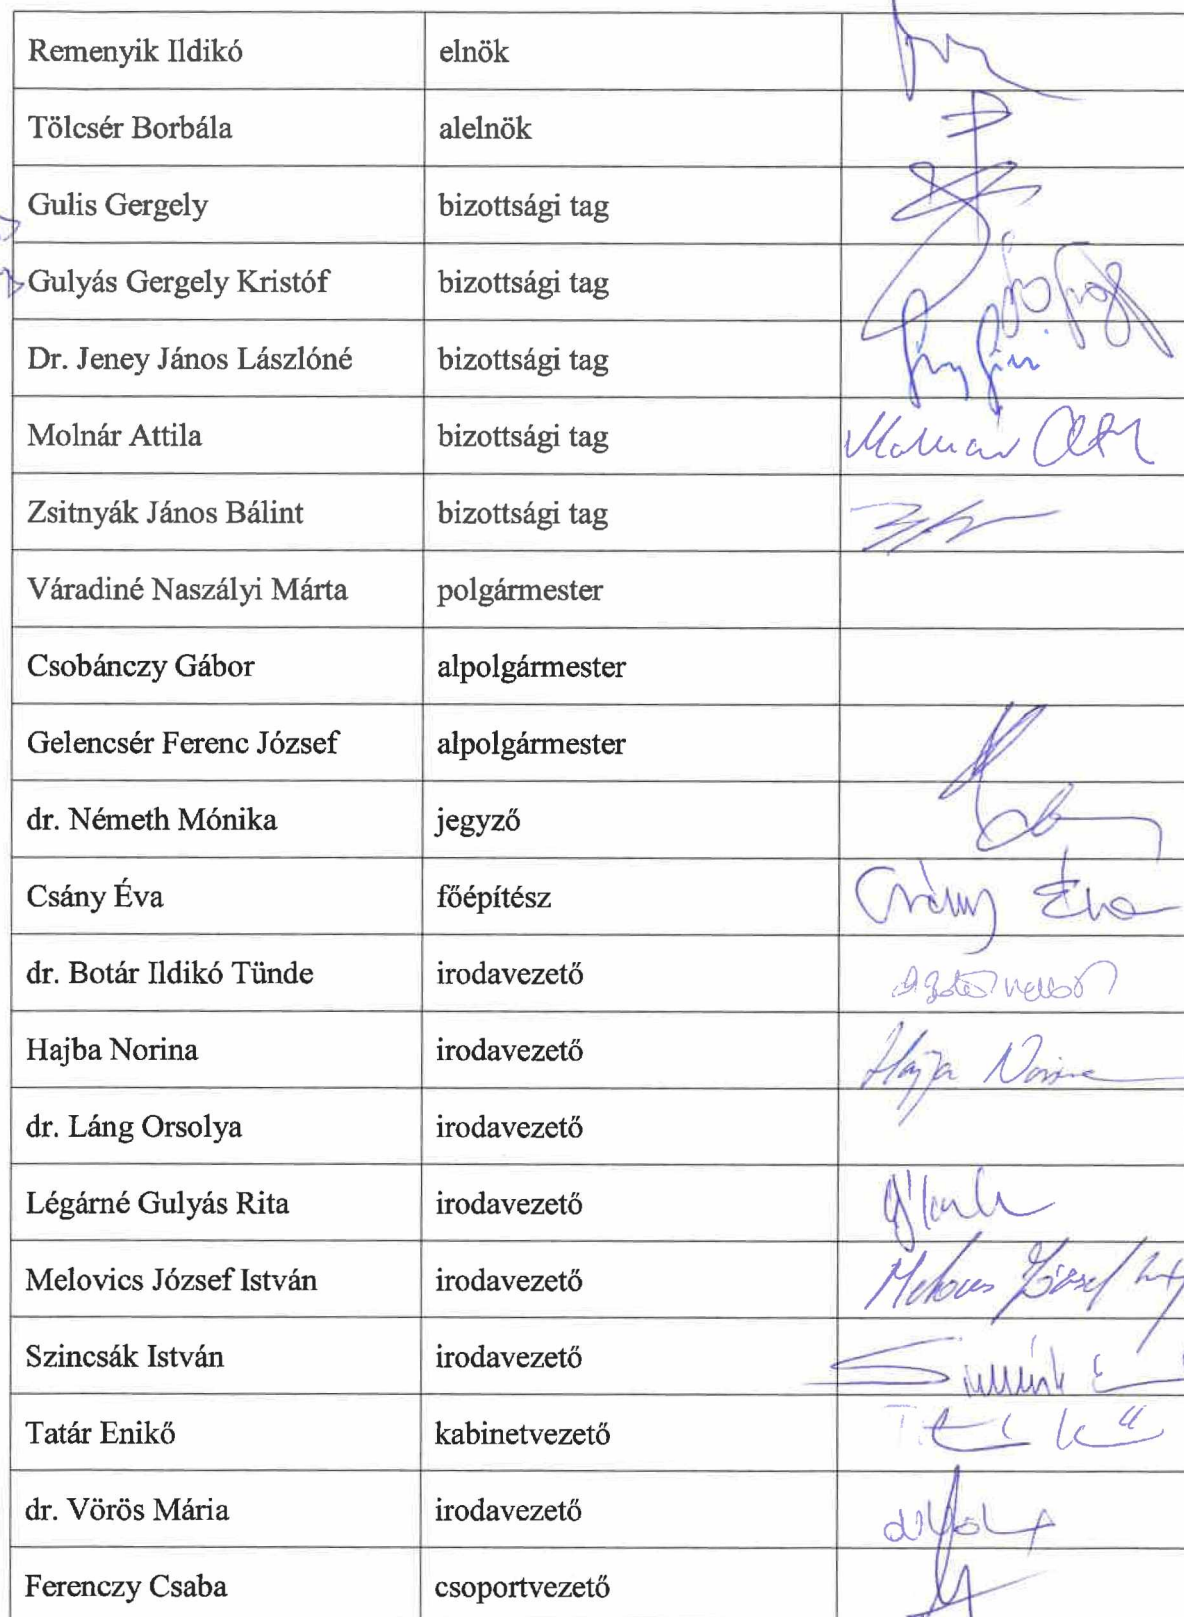 Remenyik Ildikó elnök
Tölcsér Borbála alelnök
Gulis Gergely bizottsági tag
Gulyás Gergely Kristóf bizottsági tag
Dr. Jeney János Lászlóné bizottsági tag
Molnár Attila bizottsági tag Molnár
Zsitnyák János Bálint bizottsági tag
Váradiné Naszályi Márta polgármester
Csobánczy Gábor alpolgármester
Gelencsér Ferenc József alpolgármester
dr. Németh Mónika jegyző
Csány Éva főépítész Csány Éva
dr. Botár Ildikó Tünde irodavezető
Hajba Norina irodavezető Hajba Norina
dr. Láng Orsolya irodavezető
Légárné Gulyás Rita irodavezető
Melovics József István irodavezető Melovics József
Szincsák István irodavezető
Tatár Enikő kabinetvezető
dr. Vörös Mária irodavezető
Ferenczy Csaba csoportvezető